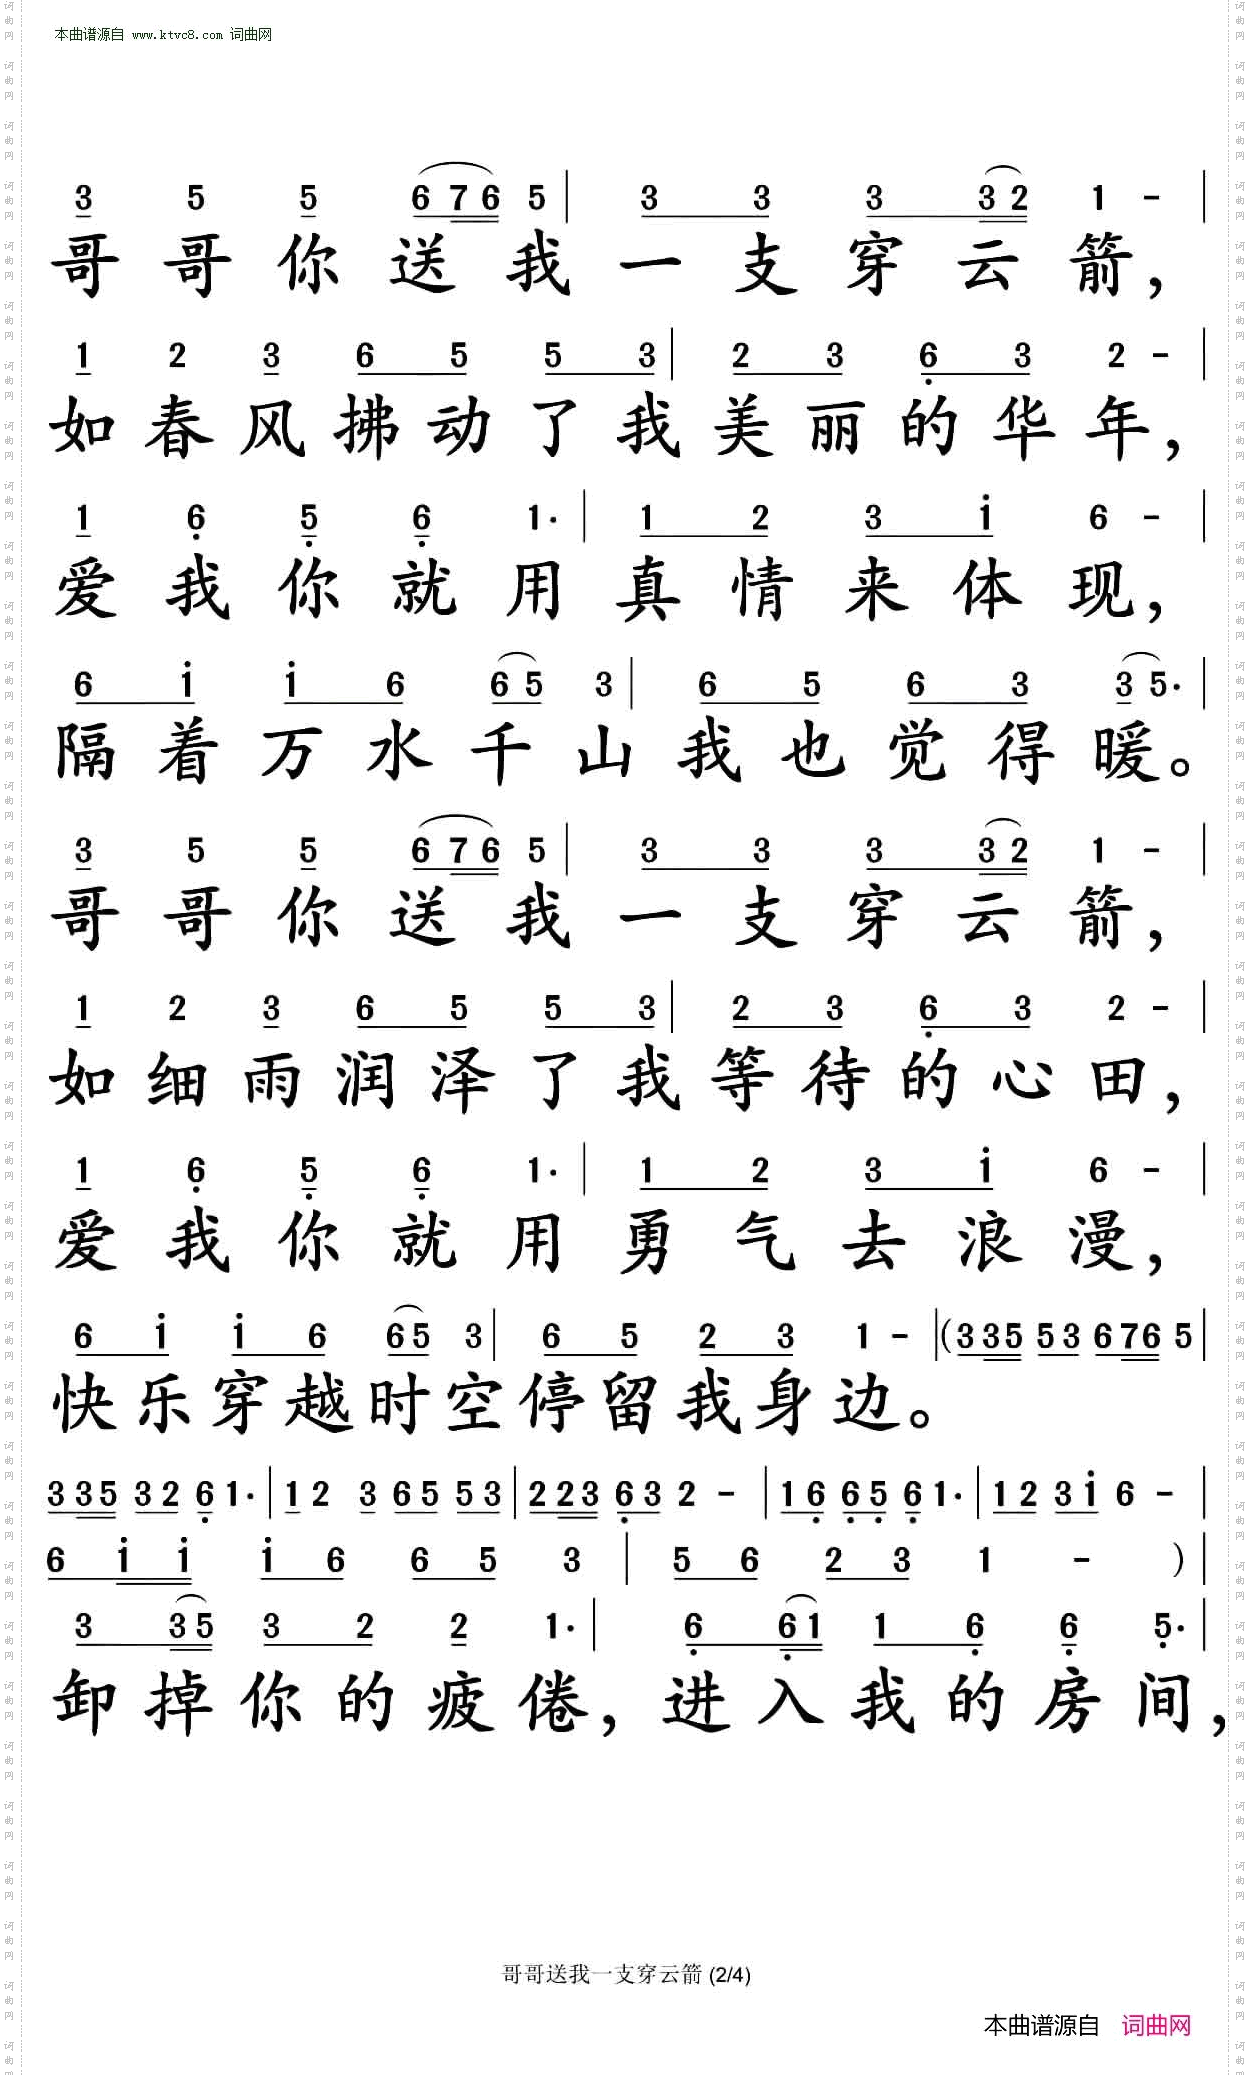 本曲谱源自 www.ktvc8.com 词曲网
3 5 5 6 7 6 5 | 3 3 3 3 2 1 - |
哥哥你送我一支穿云箭，
1 2 3 6 5 5 3 | 2 3 6̣ 3 2 - |
如春风拂动了我美丽的华年，
1 6̣ 5̣ 6̣ 1· | 1 2 3 i 6 - |
爱我你就用真情来体现，
6 i i 6 6 5 3 | 6 5 6 3 3 5· |
隔着万水千山我也觉得暖。
3 5 5 6 7 6 5 | 3 3 3 3 2 1 - |
哥哥你送我一支穿云箭，
1 2 3 6 5 5 3 | 2 3 6̣ 3 2 - |
如细雨润泽了我等待的心田，
1 6̣ 5̣ 6̣ 1· | 1 2 3 i 6 - |
爱我你就用勇气去浪漫，
6 i i 6 6 5 3 | 6 5 2 3 1 - | (3 3 5 5 3 6 7 6 5 |
快乐穿越时空停留我身边。
3 3 5 3 2 6̣ 1· | 1 2 3 6 5 5 3 | 2 2 3 6̣ 3 2 - | 1 6̣ 6̣ 5̣ 6̣ 1· | 1 2 3 i 6 - |
6 i i i 6 6 5 3 | 5 6 2 3 1 - ) |
3 3 5 3 2 2 1· | 6̣ 6̣ 1 1 6̣ 6̣ 5̣· |
卸掉你的疲倦，进入我的房间，
哥哥送我一支穿云箭 (2/4)
本曲谱源自 词曲网